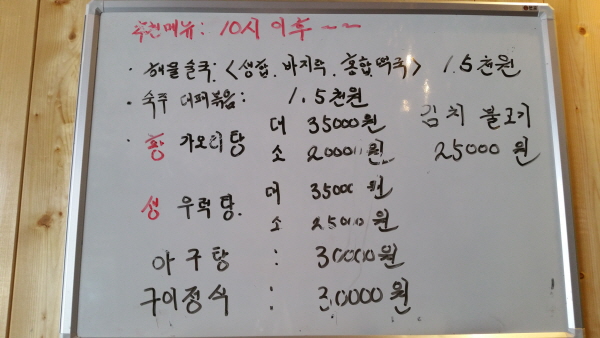 추천메뉴: 10시 이후 ~~
· 해물술국: <생합. 바지락. 홍합떡국> 1.5천원
· 숙주 대패볶음: 1.5천원
· 황 가오리탕 대 35000원
소 20000원
김치 불고기
25000원
생 우럭탕. 대 35000원
소 25000원
아구탕 : 30000원
구이정식 : 30000원